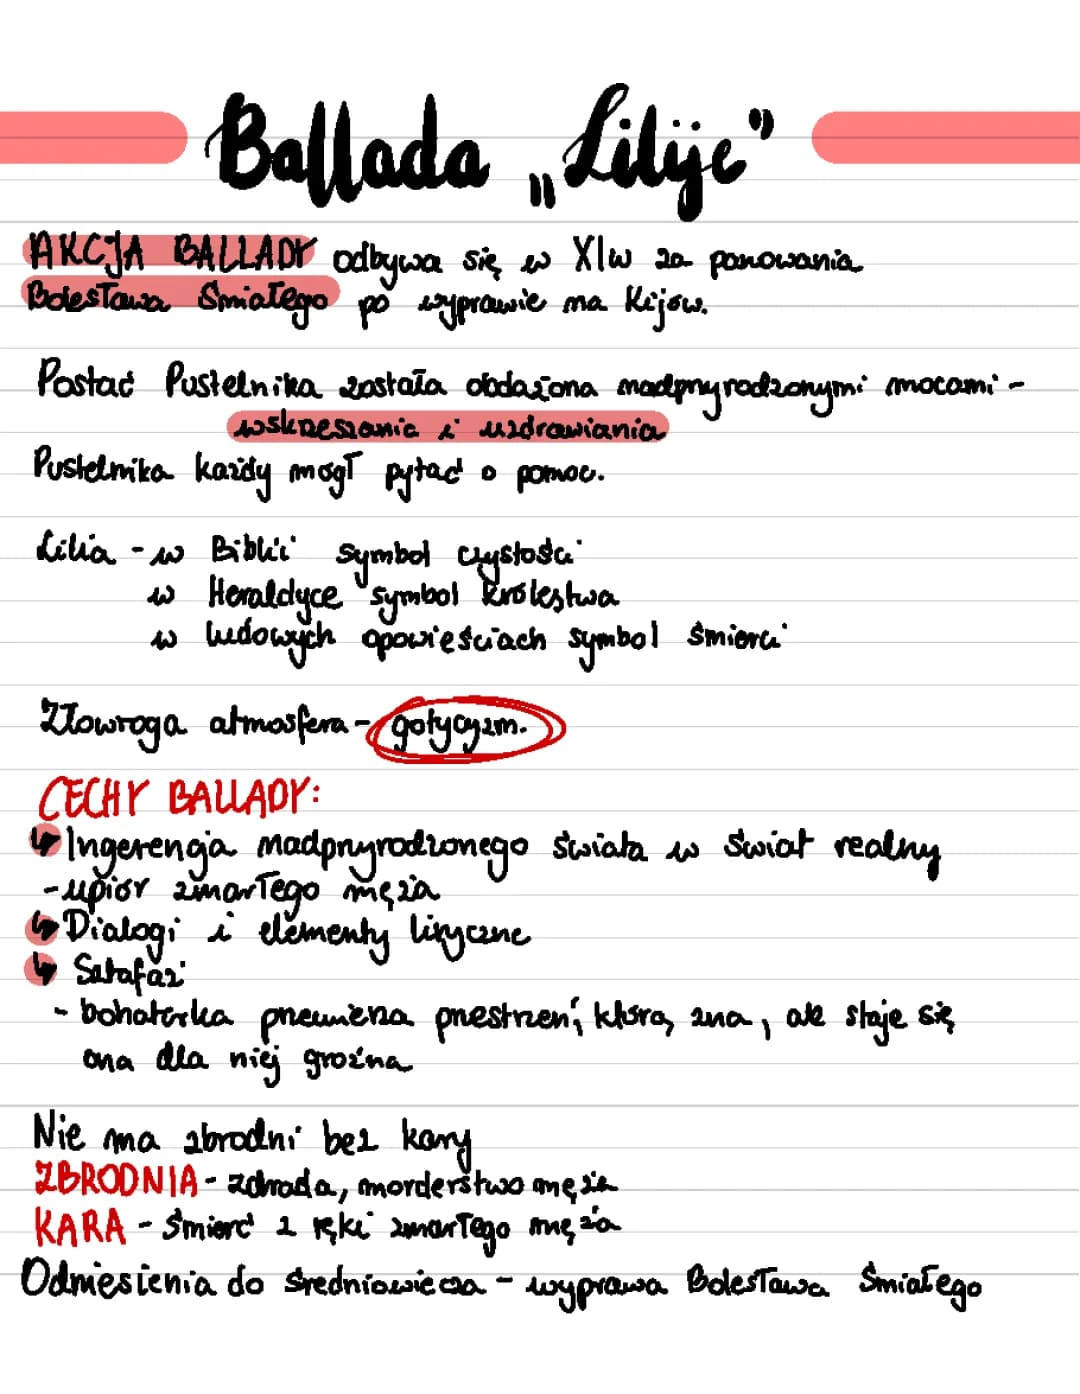 Ballada „Lilije"
AKCJA BALLADY odbywa się w XIw za panowania
Bolesława Śmiałego po wyprawie na Kijów.
Postać Pustelnika została obdażona nadprzyrodzonymi mocami -
wskrzeszanie i uzdrawiania
Pustelnika każdy mógł pytać o pomoc.
Lilia - w Biblii symbol czystości
w Heraldyce symbol królestwa
w ludowych opowieściach symbol śmierci
Złowroga atmosfera - gotycyzm.
CECHY BALLADY:
↳ Ingerencja nadprzyrodzonego świata w świat realny
- upiór zmarłego męża
↳ Dialogi i elementy liryczne
↳ Satafaż
- bohaterka przemierza przestrzeń, którą zna, ale staje się
ona dla niej groźna
Nie ma zbrodni bez kary
ZBRODNIA - zdrada, morderstwo męża
KARA - śmierć z ręki zmarłego męża
Odniesienia do średniowiecza - wyprawa Bolesława Śmiałego